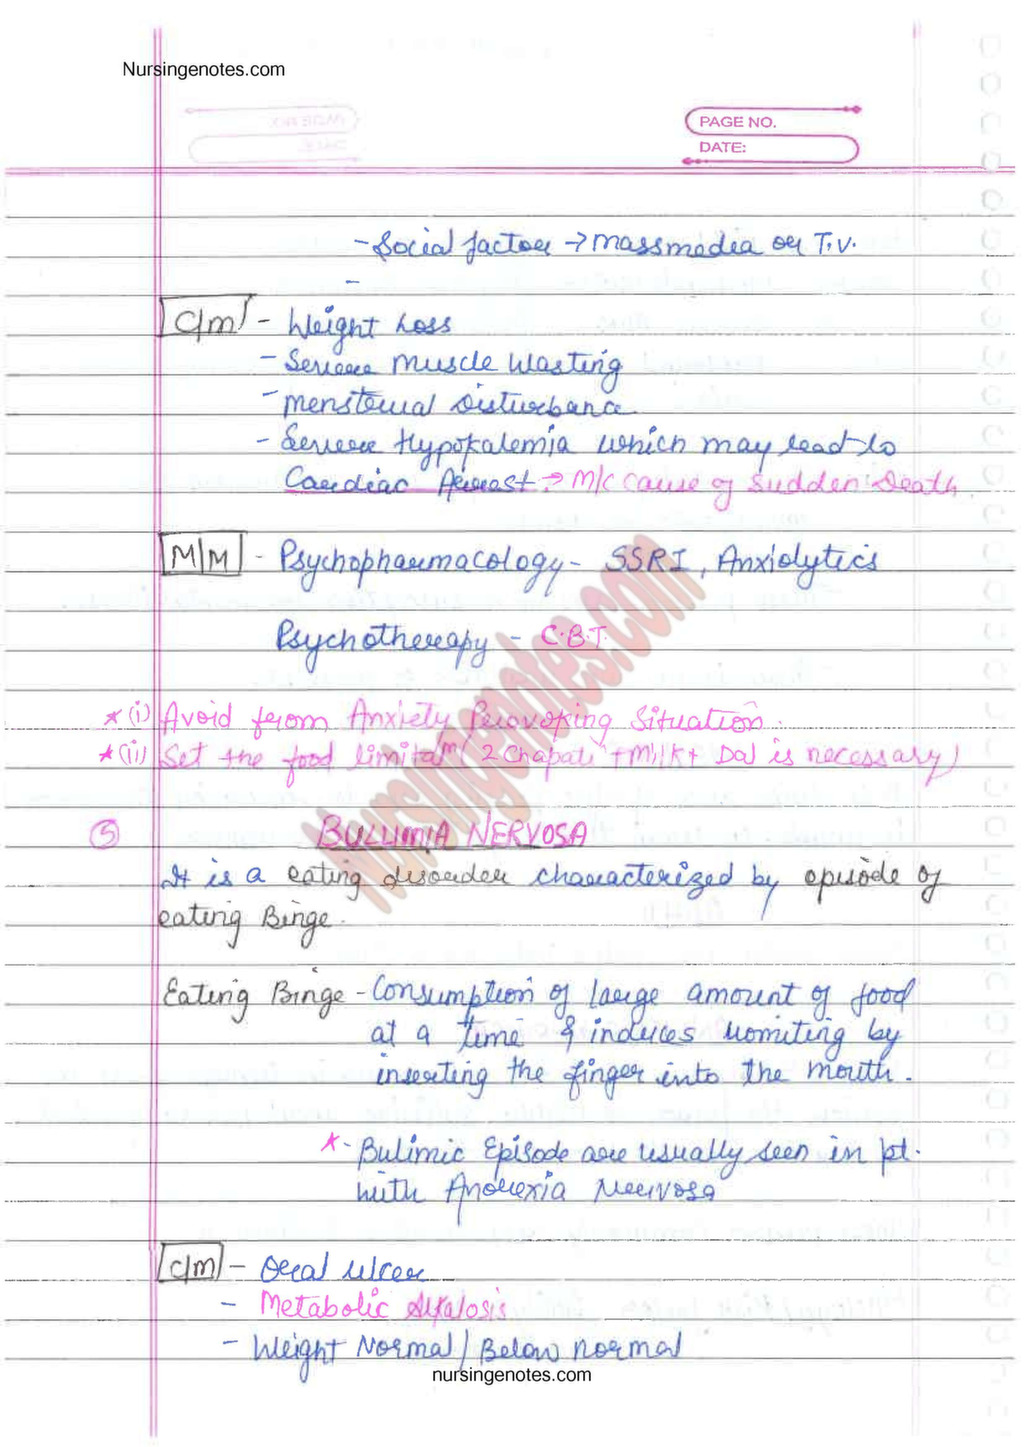 Nursingenotes.com
PAGE NO.
DATE:
- Social factor → Massmedia or T.V.
-
C/M - Weight Loss
- Severe Muscle Wasting
- Menstrual Disturbance
- Severe Hypokalemia which may lead to
Cardiac Arrest → M/c cause of Sudden Death
M/M - Psychopharmacology - SSRI, Anxiolytics
Psychotherapy - C.B.T.
* (i) Avoid from Anxiety Provoking Situation.
* (ii) Set the food limitatn (2 Chapati + Milk + Dal is necessary)
⑤ BULLIMIA NERVOSA
It is a eating disorder characterized by episode of
eating Binge.
Eating Binge - Consumption of large amount of food
at a time & induces vomiting by
inserting the finger into the mouth.
* - Bulimic Episode are usually seen in pt.
with Anorexia Nervosa
C/M - Oral ulcer
- Metabolic Alkalosis
- Weight Normal / Below normal
nursingenotes.com
Nursingenotes.com